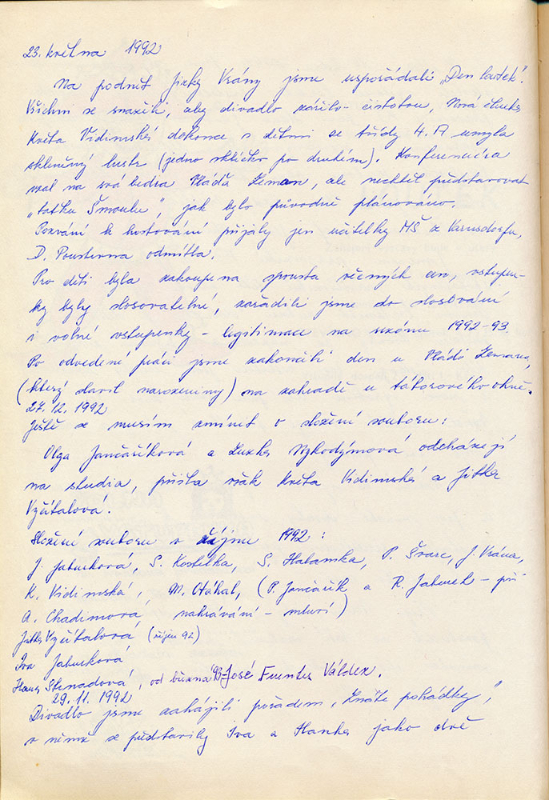 23. května 1992
Na podnět Jirky Vrány jsme uspořádali „Den loutek“.
Všichni se snažili, aby divadlo zářilo čistotou, Nová
Květa Vidimská dokonce s dětmi ze třídy 4. A umyla
skleněný lustr (jedno sklíčko po druhém). Konferenciéra
vzal na svá bedra Vláďa Zeman, ale nechtěl představovat
„tatku Šmoulu“, jak bylo původně plánováno.
Pozvání k hostování přijaly jen učitelky MŠ z Varnsdorfu,
D. Poustevna odmítla.
Pro děti byla zakoupena spousta věcných cen, vstupen-
ky byly slosovatelné, zařadili jsme do slosování
i volné vstupenky - legitimace na sezónu 1992-93.
Po odvedené práci jsme zakončili den u Vládi Zemana,
(který slavil narozeniny) na zahradě u táborového ohně.
27. 12. 1992
Ještě se musím zmínit o složení souboru:
Olga Jančaříková a Lenka Vykodýmová odcházejí
na studia, přišla však Květa Vidimská a Jitka
Vyčítalová.
Složení souboru v říjnu 1992:
J. Jaburková, S. Kostelka, S. Halamka, P. Švarc, J. Vrána,
K. Vidimská, M. Otáhal, (P. Jančařík a R. Jaburek - při
A. Chadimová, nahrávání - mluví)
Jitka Vyčítalová (říjen 92)
Iva Jaburková
Hana Stenadová, od března 93 - José Fuentes Váldez.
29. 11. 1992
Divadlo jsme zahájili pořadem „Znáte pohádky“,
v němž se představily Iva a Hanka jako dvě